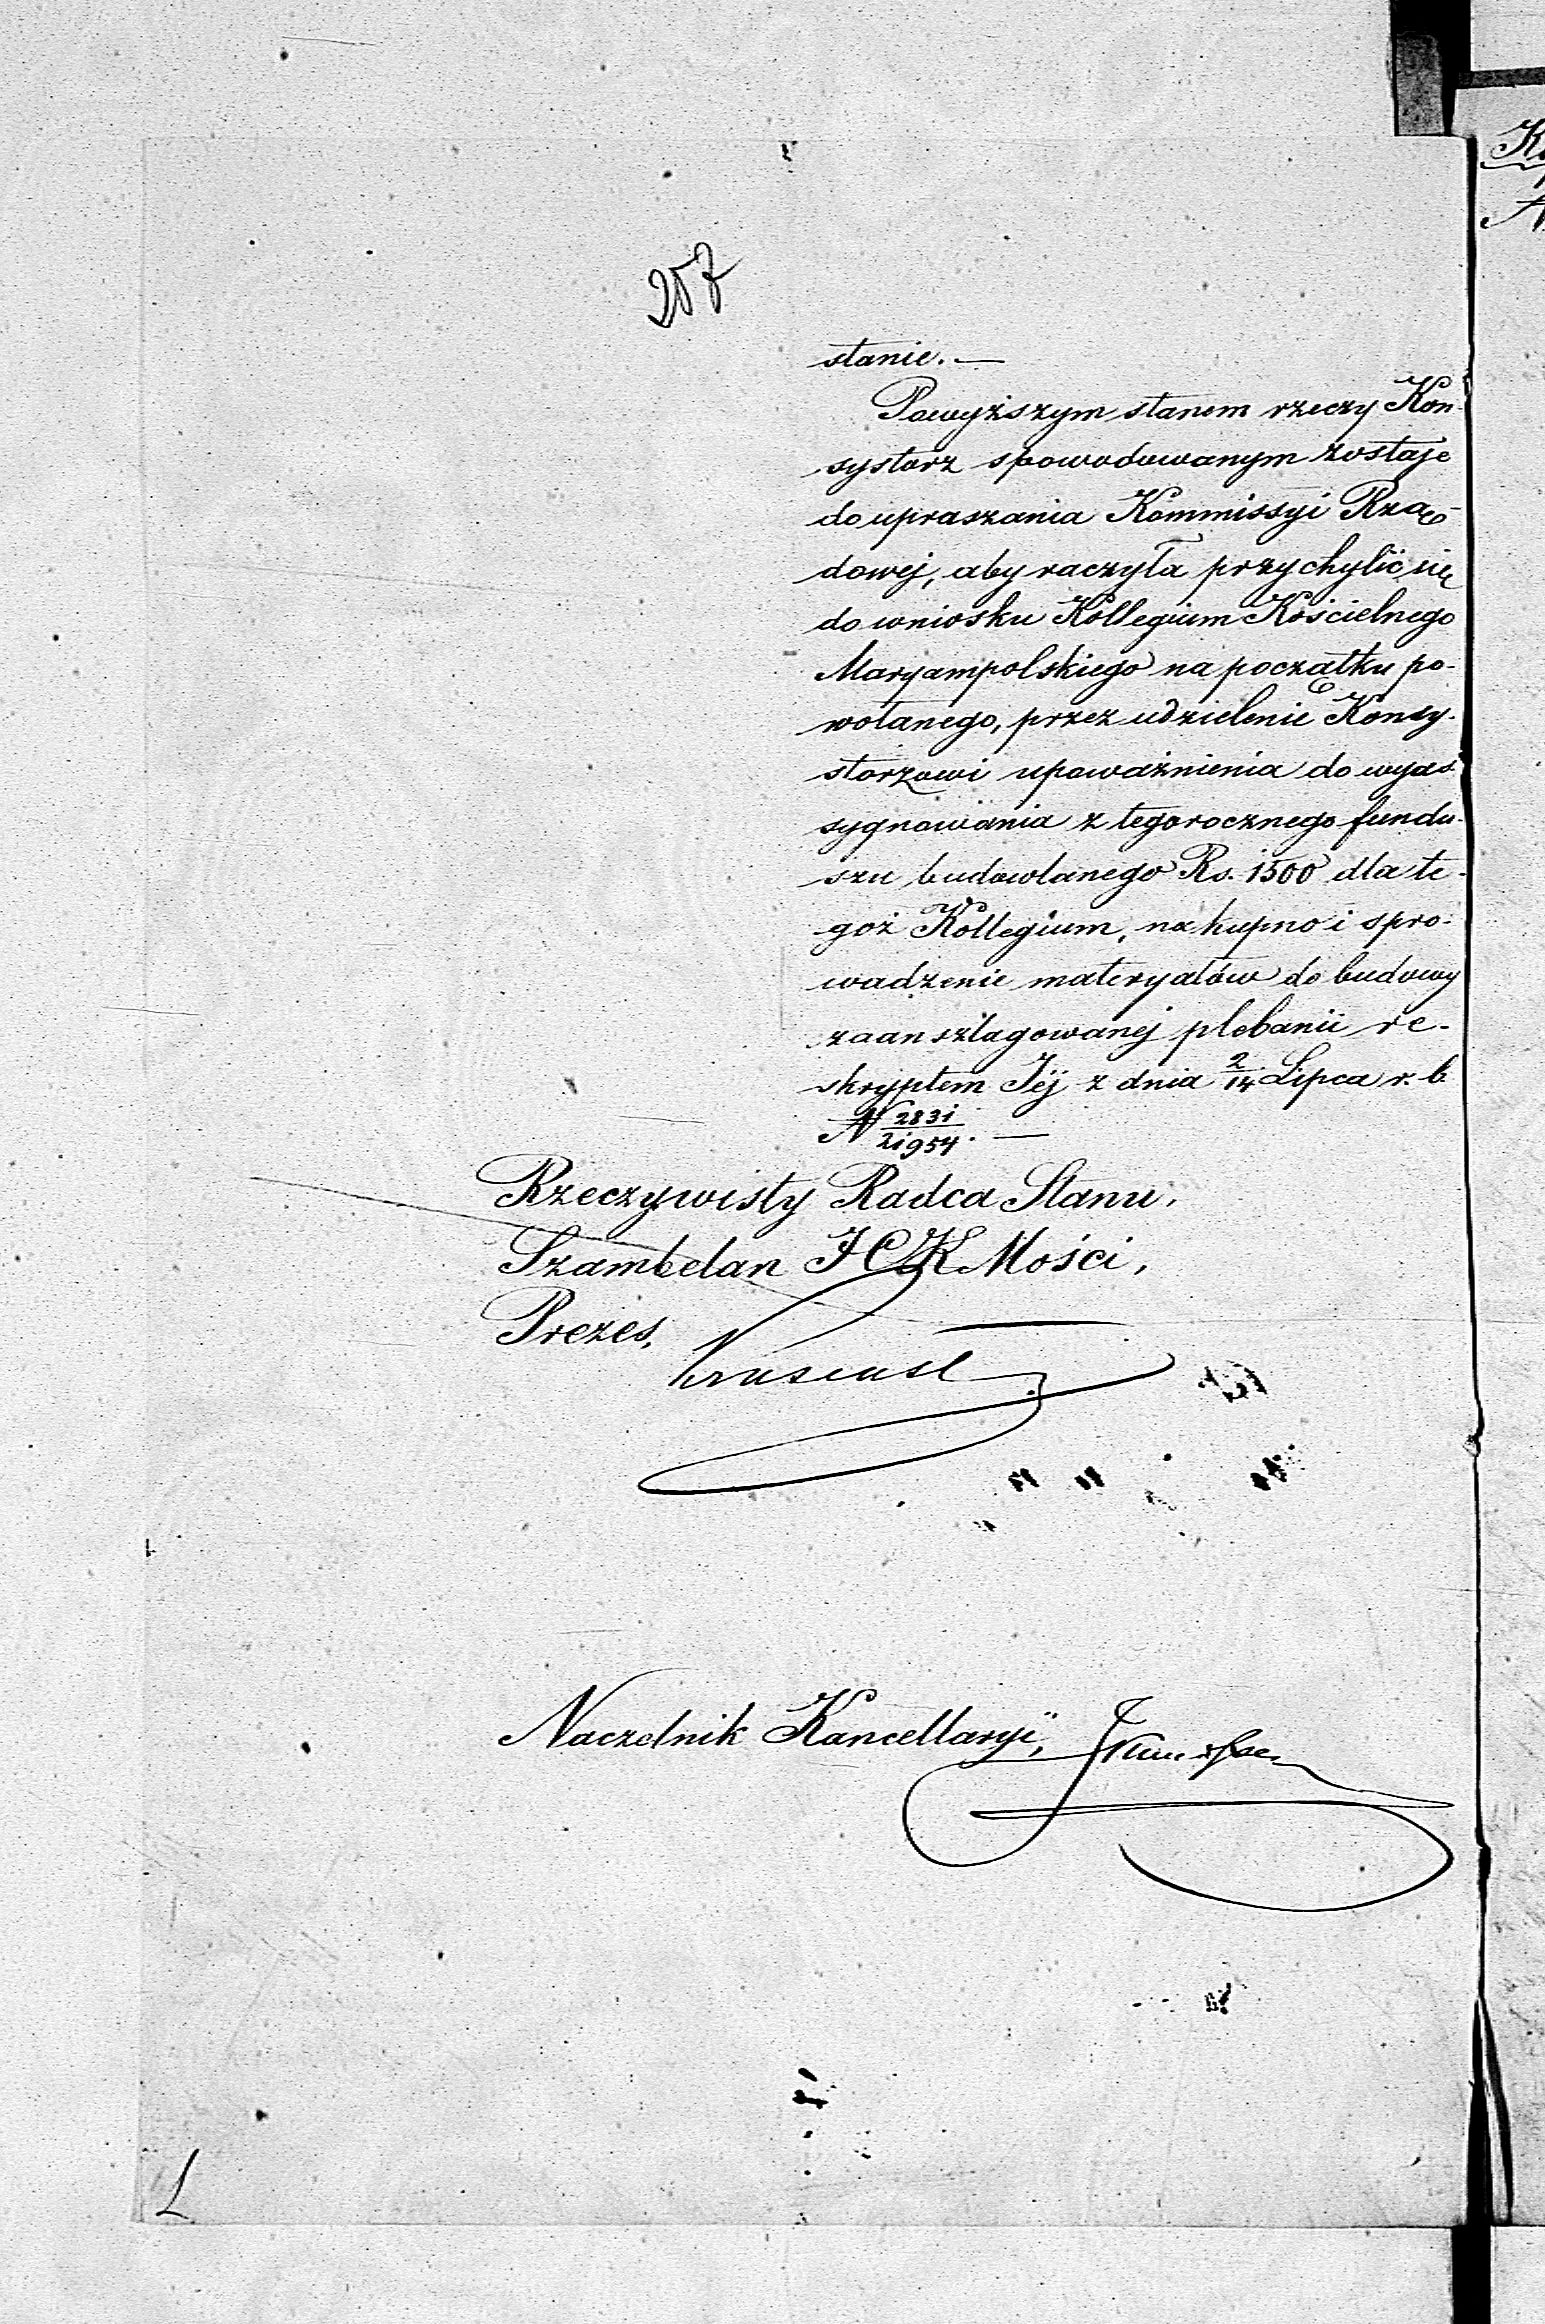 257
stanie. —
Powyższym stanem rzeczy Kon-
systorz spowodowanym zostaje
do upraszania Kommissyi Rzą-
dowej, aby raczyła przychylić się
do wniosku Kollegium Kościelnego
Maryampolskiego na początku po-
wołanego, przez udzielenie Konsy-
storzowi upoważnienia do wyas-
sygnowania z tegorocznego fundu-
szu budowlanego Rs. 1500 dla te-
goż Kollegium, na kupno i spro-
wadzenie materyałów do budowy
zaanszlagowanej plebanii re-
skryptem Jéj z dnia 2/14 Lipca r. b.
N 2831/21954. —
Rzeczywisty Radca Stanu,
Szambelan JCK Mości,
Prezes,
Naczelnik Kancellaryi,
L